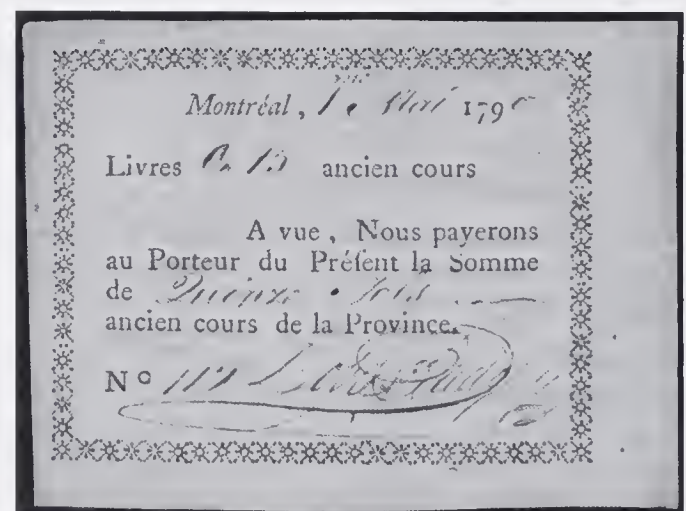 Montréal, 1 179
Livres 15 ancien cours
A vue, Nous payerons
au Porteur du Préſent la Somme
de Quinze Sols
ancien cours de la Province.
Nº